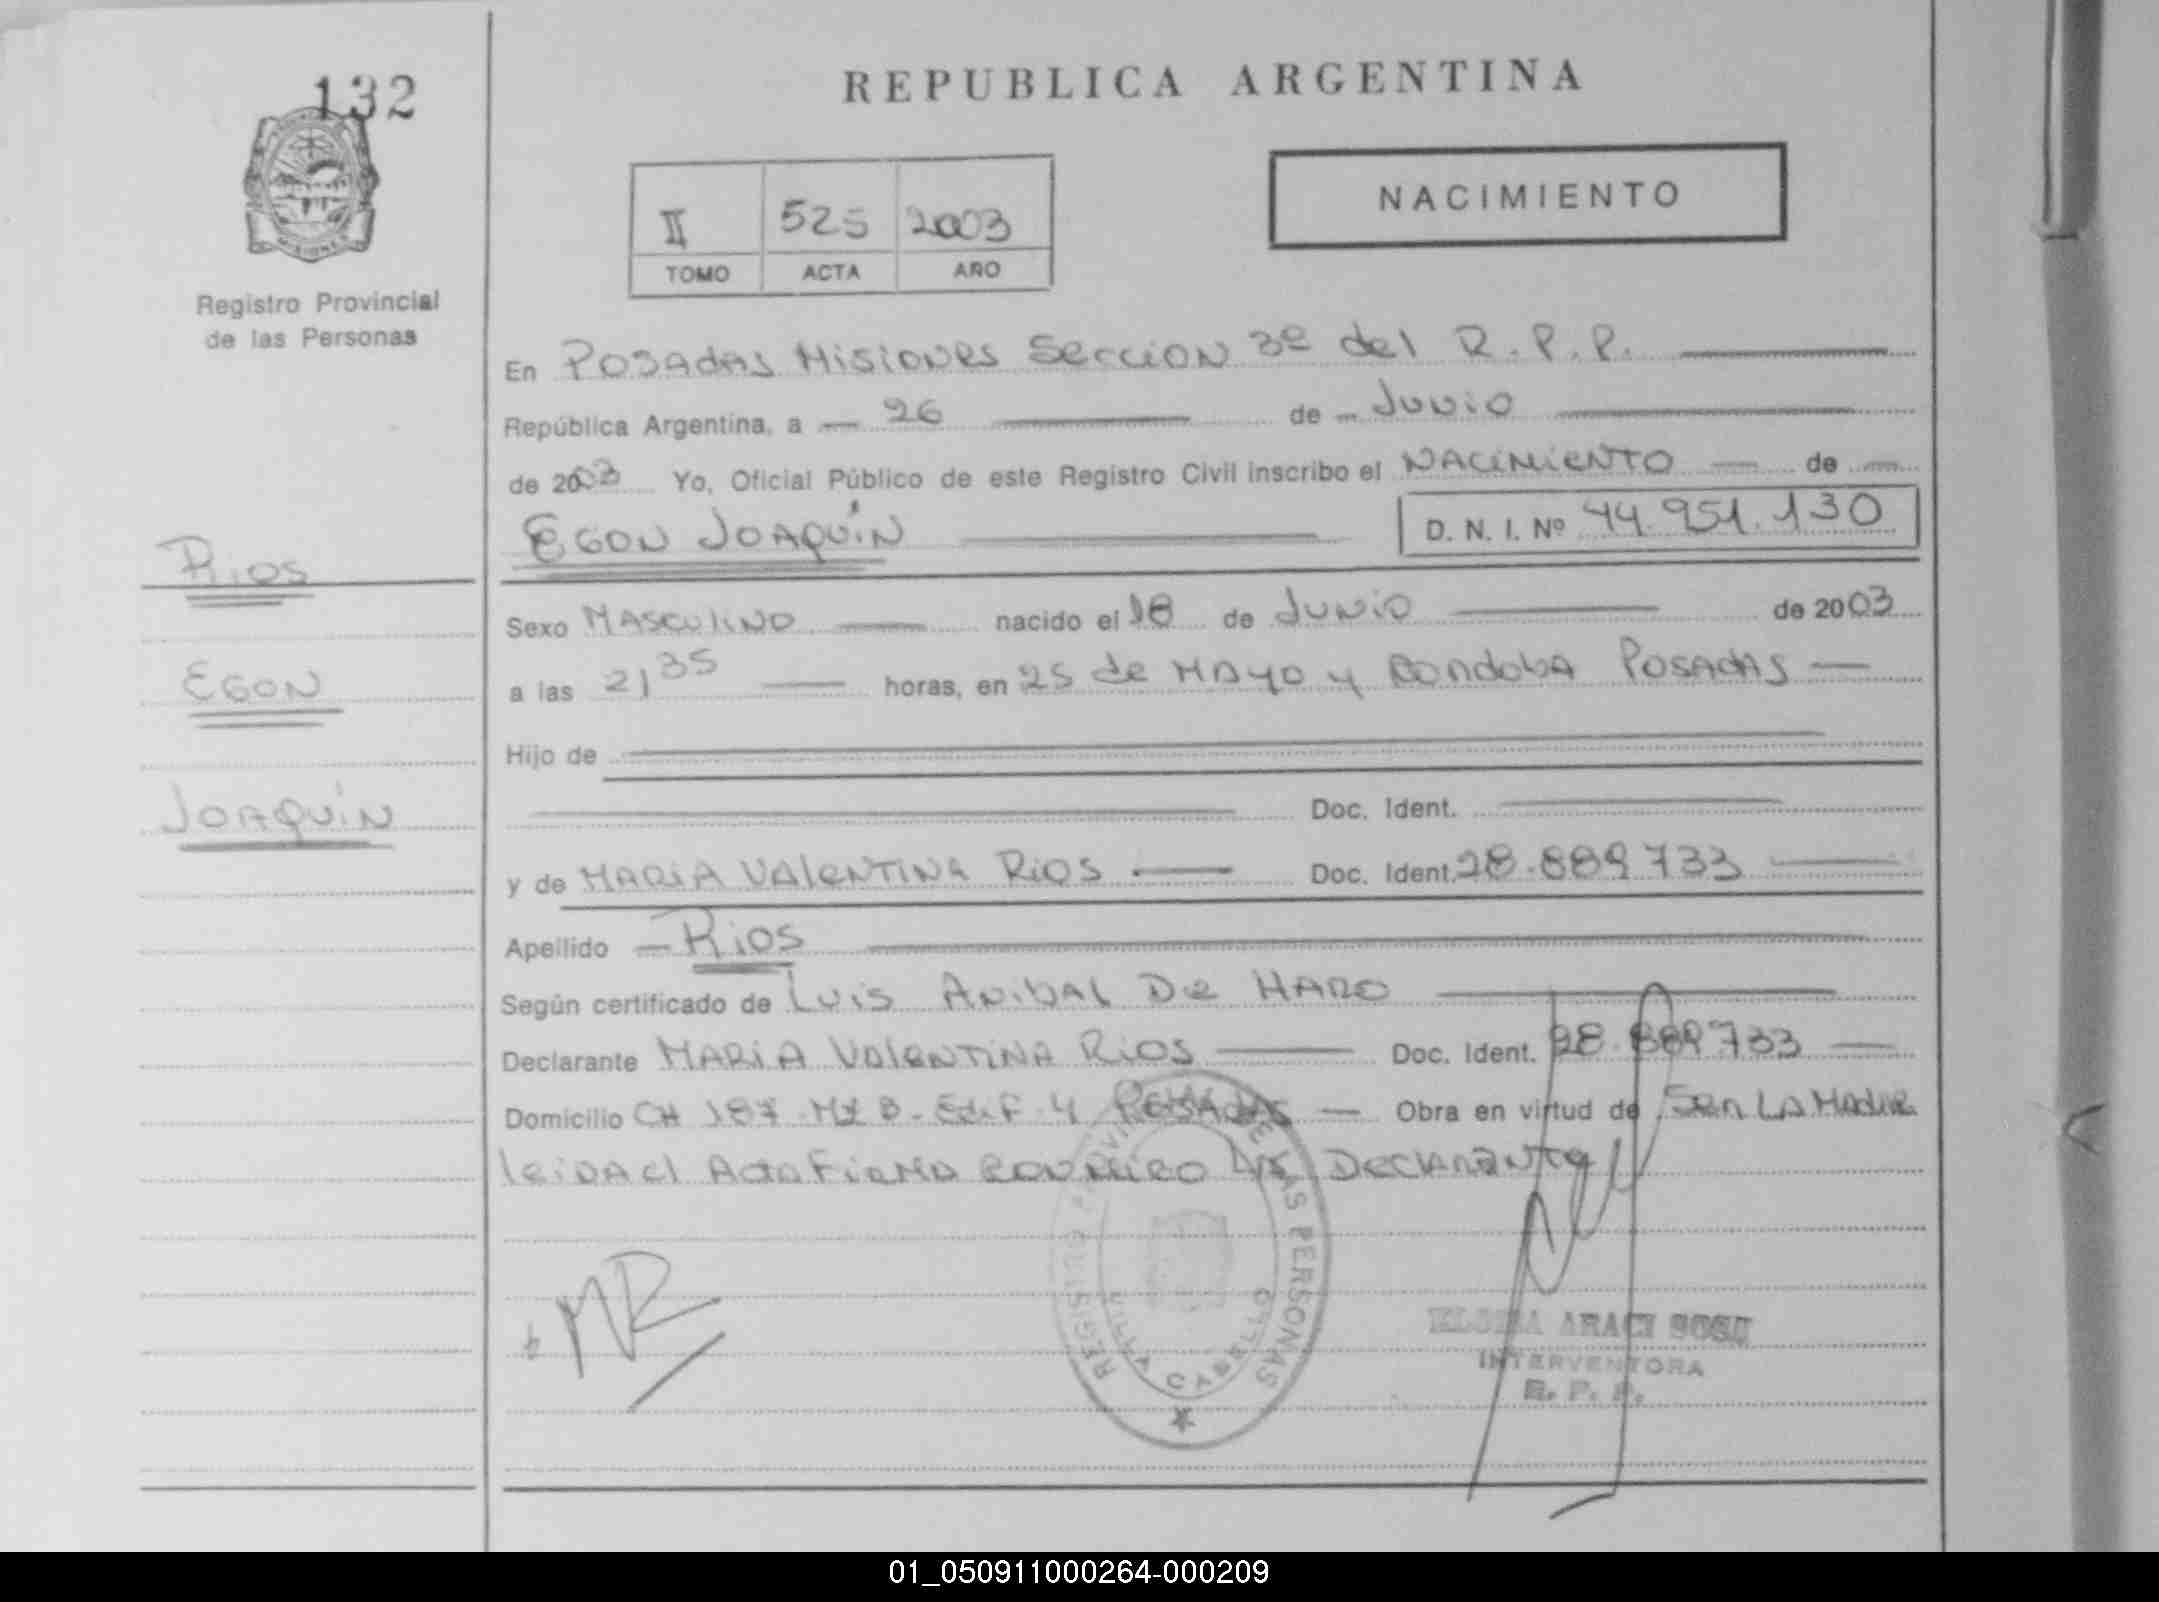 132
REPUBLICA ARGENTINA
NACIMIENTO
II 525 2003
TOMO ACTA AÑO
Registro Provincial
de las Personas
En Posadas Misiones Seccion 3º del R.P.P.
República Argentina, a 26 de Junio
de 2003 Yo, Oficial Público de este Registro Civil inscribo el Nacimiento de
Egon Joaquín D. N. I. Nº 44.951.130
Rios
Egon
Joaquín
Sexo Masculino nacido el 18 de Junio de 2003
a las 21 35 horas, en 25 de Mayo y Cordoba Posadas
Hijo de
Doc. Ident.
y de Maria Valentina Rios Doc. Ident. 28.889.733
Apellido Rios
Según certificado de Luis Anibal De Haro
Declarante Maria Valentina Rios Doc. Ident. 28.889733
Domicilio CH 187 Mz B - Edif. 4 Posadas Obra en virtud de Ser La Madre
leida el Acta Firma conmigo Declarante
MR
REGISTRO PROVINCIAL DE LAS PERSONAS
VILLA CABELLO
ARACI SOSA
INTERVENTORA
R. P. P.
01_050911000264-000209